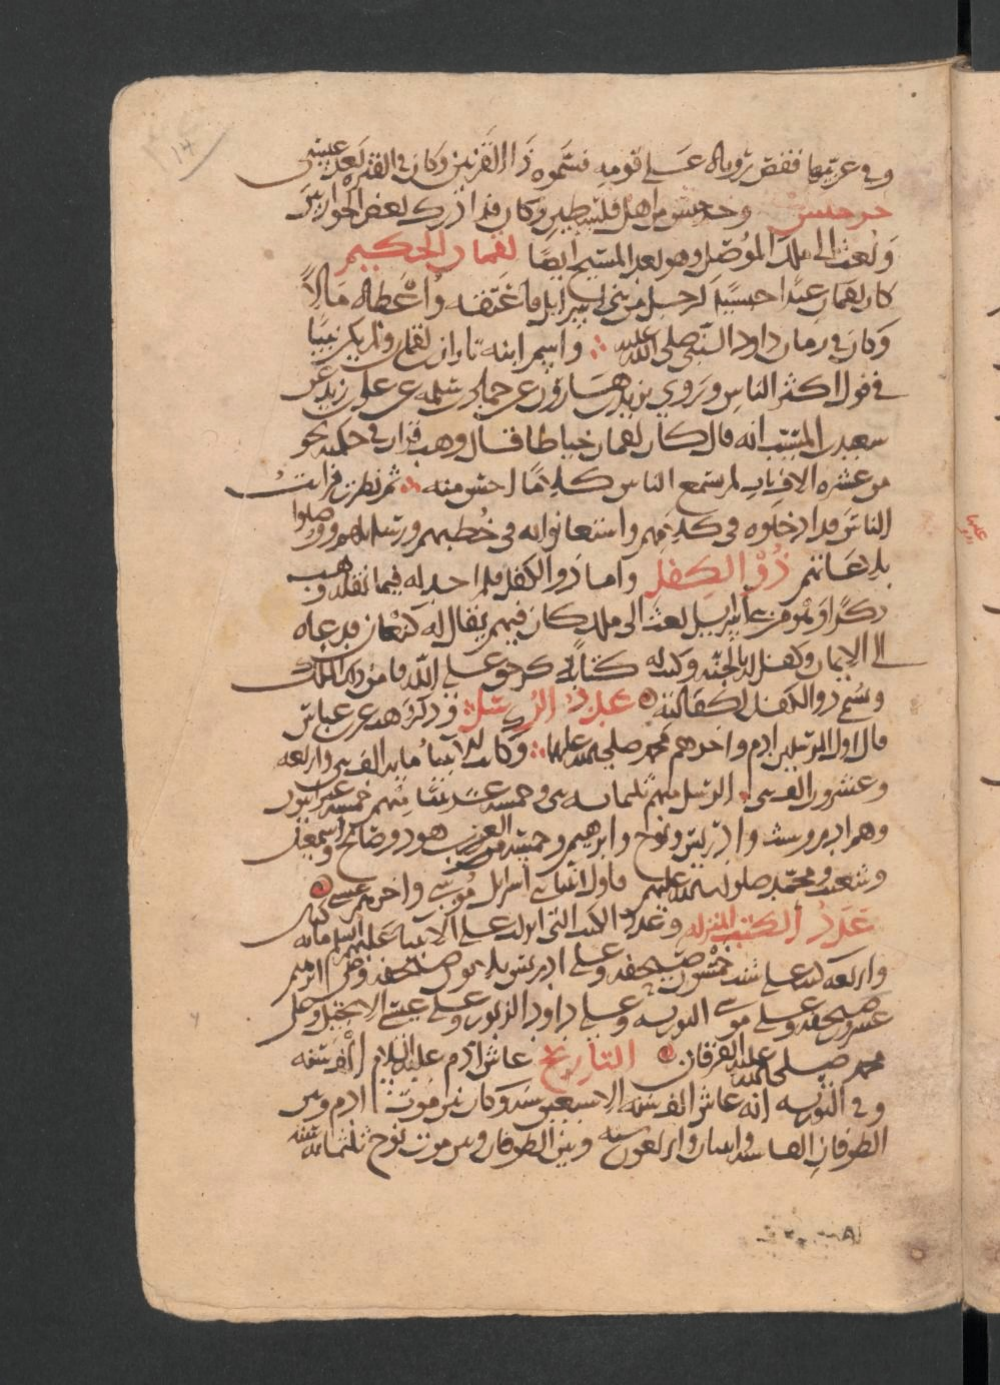 وفي غربيها فقص رؤياه على قومه فسموه ذا القرنين وكان في الفترة بعد عيسى
جرجيس وجرجيس من اهل فلسطين وكان قد ادرك بعض الحواريين
وبعث الى ملك الموصل وهو بعد المسيح ايضا لقمان الحكيم
كان لقمان عبدا حبشيا لرجل من بني اسرايل فاعتقه واعطاه مالا
وكان في زمان داود النبي صلى الله عليه واسم ابنه ثاران لقمن ولم يكن نبيا
في قول اكثر الناس وروى يزيد بن هارون عن حماد بن سلمه عن علي بن زيد عن
سعيد بن المسيب انه قال كان لقمان خياطا قال وهب قرات في حكمته نحو
من عشره الاف باب لم يسمع الناس كلاما احسن منه ثم نظرت فرايت
الناس قد ادخلوه في كلامهم واستعانوا به في خطبهم ورسايلهم ووصلوا
بلاغاتهم ذو الكفل واما ذو الكفل فلم اجد له فيما نقله وهب
ذكرا وهو من بني اسرييل بعث الى ملك كان فيهم يقال له كنعان فدعاه
الى الايمان وكفل له بالجنه وكتب له كتابا على الله فامن ذلك الملك
وسمي ذو الكفل لكفالته عدد الرسل وذكر وهب عن عباس
قال اول المرسلين ادم واخرهم محمد صلى الله عليهما وكانت الانبيا مايه الف نبي واربعه
وعشرون الف نبي الرسل منهم ثلثمايه نبي وخمسه عشر نبيا منهم خمسه عبرانيون
وهم ادم وشيث وادريس ونوح وابرهيم وخمسه من العرب هود وصالح واسمعيل
وشعيب ومحمد صلوات الله عليهم فاول انبيا بني اسرايل موسى واخرهم عيسى
عدد الكتب المنزله وعدد الكتب التي انزلت على الانبيا عليهم السلم مايه
واربعه كتب على شيث خمسون صحيفه وعلى ادريس ثلاثون صحيفه وعلى ابرهيم
عشرون صحيفه وعلى موسى التوريه وعلى داود الزبور وعلى عيسى الانجيل وعلى
محمد صلى الله عليه الفرقان التاريخ عاش ادم عليه السلام الف سنه
وفي التوريه انه عاش الف سنه الا سبعين سنه وكان بين موت ادم وبين
الطوفان الفا سنه واثنان واربعون سنه وبين الطوفان وبين موت نوح ثلثمايه سنه